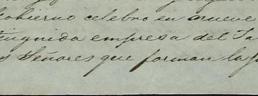 obierno celebro en nueve
tinguida empresa del Ta
s Señores que forman la